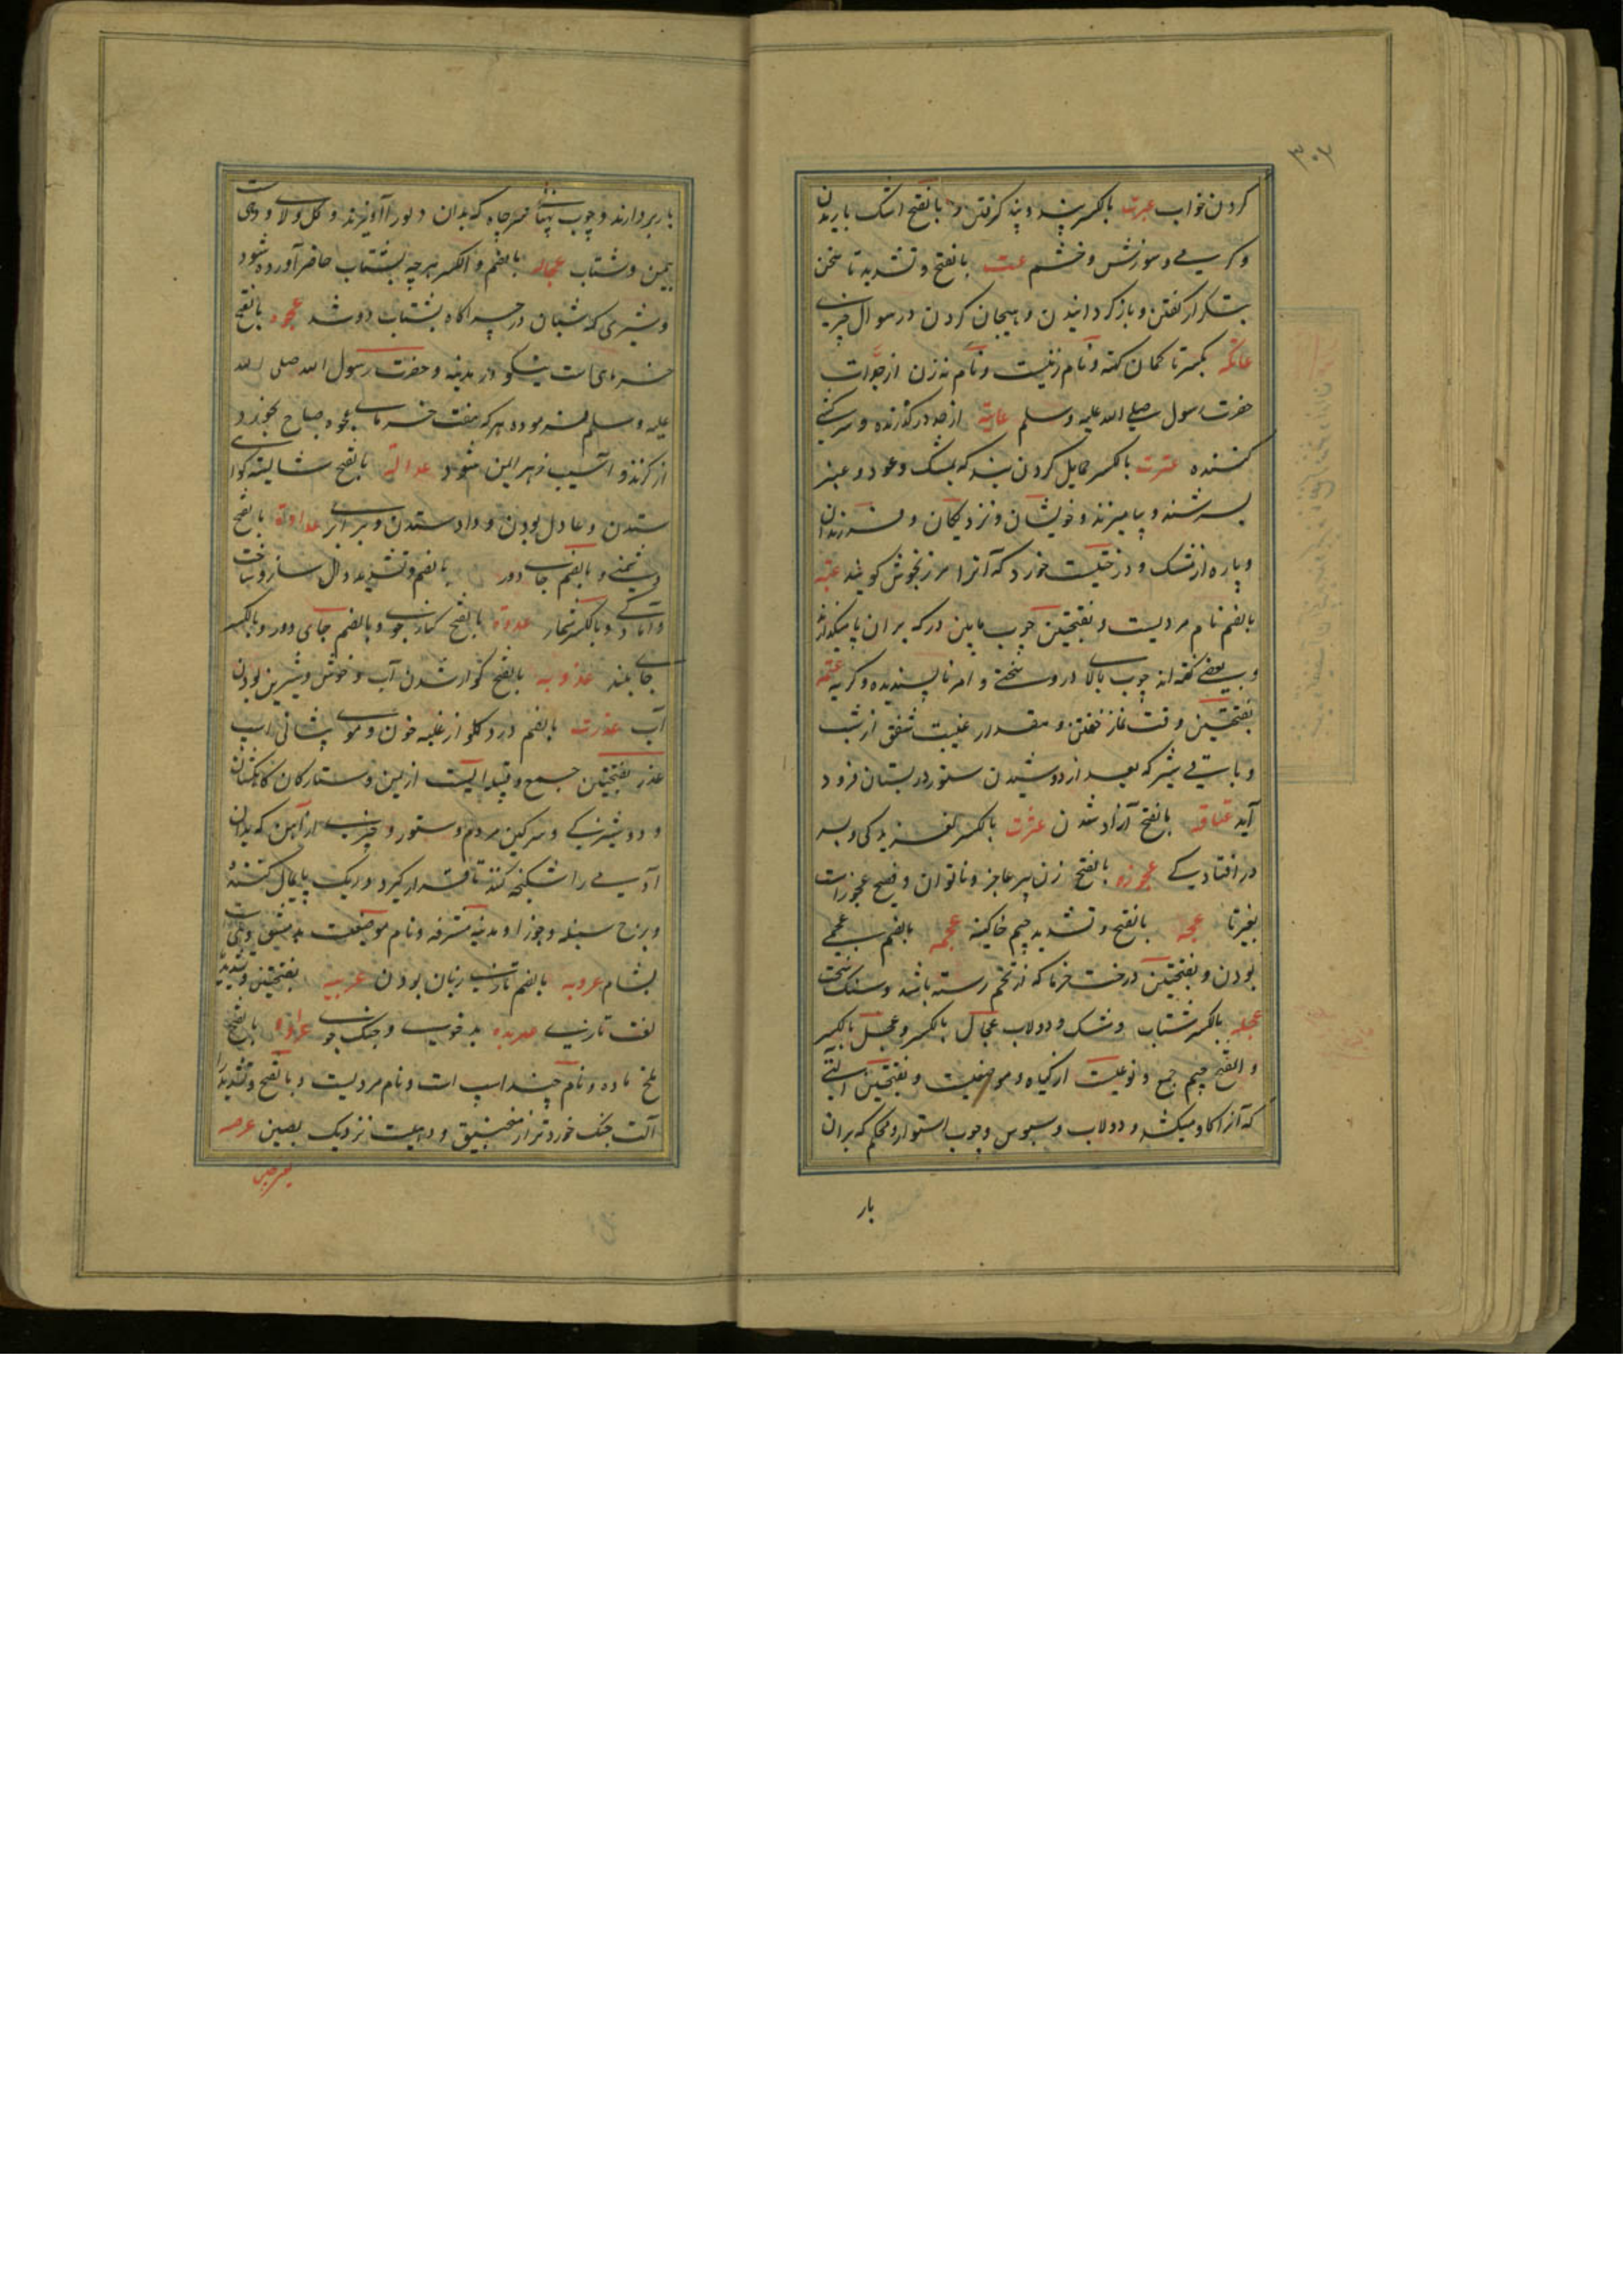 کردن خواب عبرت بالکسر پند و پند گرفتن و بالفتح اشک باریدن
و گرمی و سوزش و خشم عتت بالفتح و تشدید تا سخن
بتکرار گفتن و باز گردانیدن و هیجان کردن در سوال چیزی
عاتکه بکسر تا کمان کهنه و نام زنیست و نام نه زن از جدات
حضرت رسول صلی الله علیه وسلم عاتیه از حد در گذرنده و سرکشی
کننده عترت بالکسر حمایل کردن بند که بمشک و عود و عنبر
بسرشند و بیامیزند و خویشان و نزدیکان و فرزندان
و پاره از مشک و درختیست خورد که آنرا مرزنجوش گویند عتبه
بالضم نام مردیست و بفتحتین چوب پایین در که بران پا میگذارند
و بعضی گفته اند چوب بالا در و سختی و امر ناپسندیده و کریه عتمه
بفتحتین وقت نماز خفتن و مقدار غیبت شفق از شب
و باقی شیر که بعد از دوشیدن ستور در پستان فرود
آید عتاقه بالفتح آزاد شدن عثرت بالکسر لغزیدگی و بسر
در افتادگی عجوزه بالفتح زن پیر عاجز و ناتوان و فصیح عجوز است
بغیر تا عجه بالفتح و تشدید جیم خاکینه عجمه بالضم عجمی
بودن و بفتحتین درخت خرما که از تخم رسته باشد و سنک سخت
عجله بالکسر شتاب و مشک و دولاب عجال بالکسر و عجل بالکسر
و الفتح جیم جمع و نوعیست از گیاه و موضعیست و بفتحتین آلتی
که آنرا گاو میکشد و دولاب و سبوس و چوب استوار و محکم که بران
بار
بار بردارند و چوب پهنای سر چاه که بدان دلو را آویزند و گل و لای
یمن و شتاب عجاله بالضم و الکسر هر چه بشتاب حاضر آورده شود
و شیری که شبان در چراگاه بشتاب دوشد عجوه بالفتح
خرمای است نیکو در مدینه و حضرت رسول الله صلی الله
علیه وسلم فرموده هر که هفت خرمای عجوه صباح بخورد
از گزند و آسیب زهر ایمن شود عدالة بالفتح شایسته گوا
ستدن و عادل بودن و داد ستدن و برابری عداوة بالفتح
دشمنی و بالضم جای دور بالضم و تشدید دال ساز و ساخت
و آمادگی و بالکسر شمار عدوة بالفتح کنار جوی و بالضم جای دور و بالکسر
جای بلند عذوبه بالفتح گوارشدن آب و خوش و شیرین بودن
آب عذرت بالضم درد گلو از غلبه خون و موی پیشانی اسپ
عذر بفتحتین جمع و قبیله ایست از یمن و ستارگان کاهکشان
و دوشیزگی و سرگین مردم و ستور و چیزی از آهن که بدان
آدمی را شکنجه کنند تا اقرار گیرد و ریک پایمال کننده
و برج سنبله و جوزا و مدینه مشرفه و نام موضعیست بدمشق و دهی
بشام عروبه بالضم تازی زبان بودن عربیه بفتحتین و تشدید یا
لغت تازی عربده بدخویی و جنک جوی عراده بالفتح
ملخ ماده و نام چند اسپ است و نام مردیست و بالفتح و تشدید را
آلت جنک خوردتر از منجنیق و دهیست نزدیک بصین عرصه
عرصه